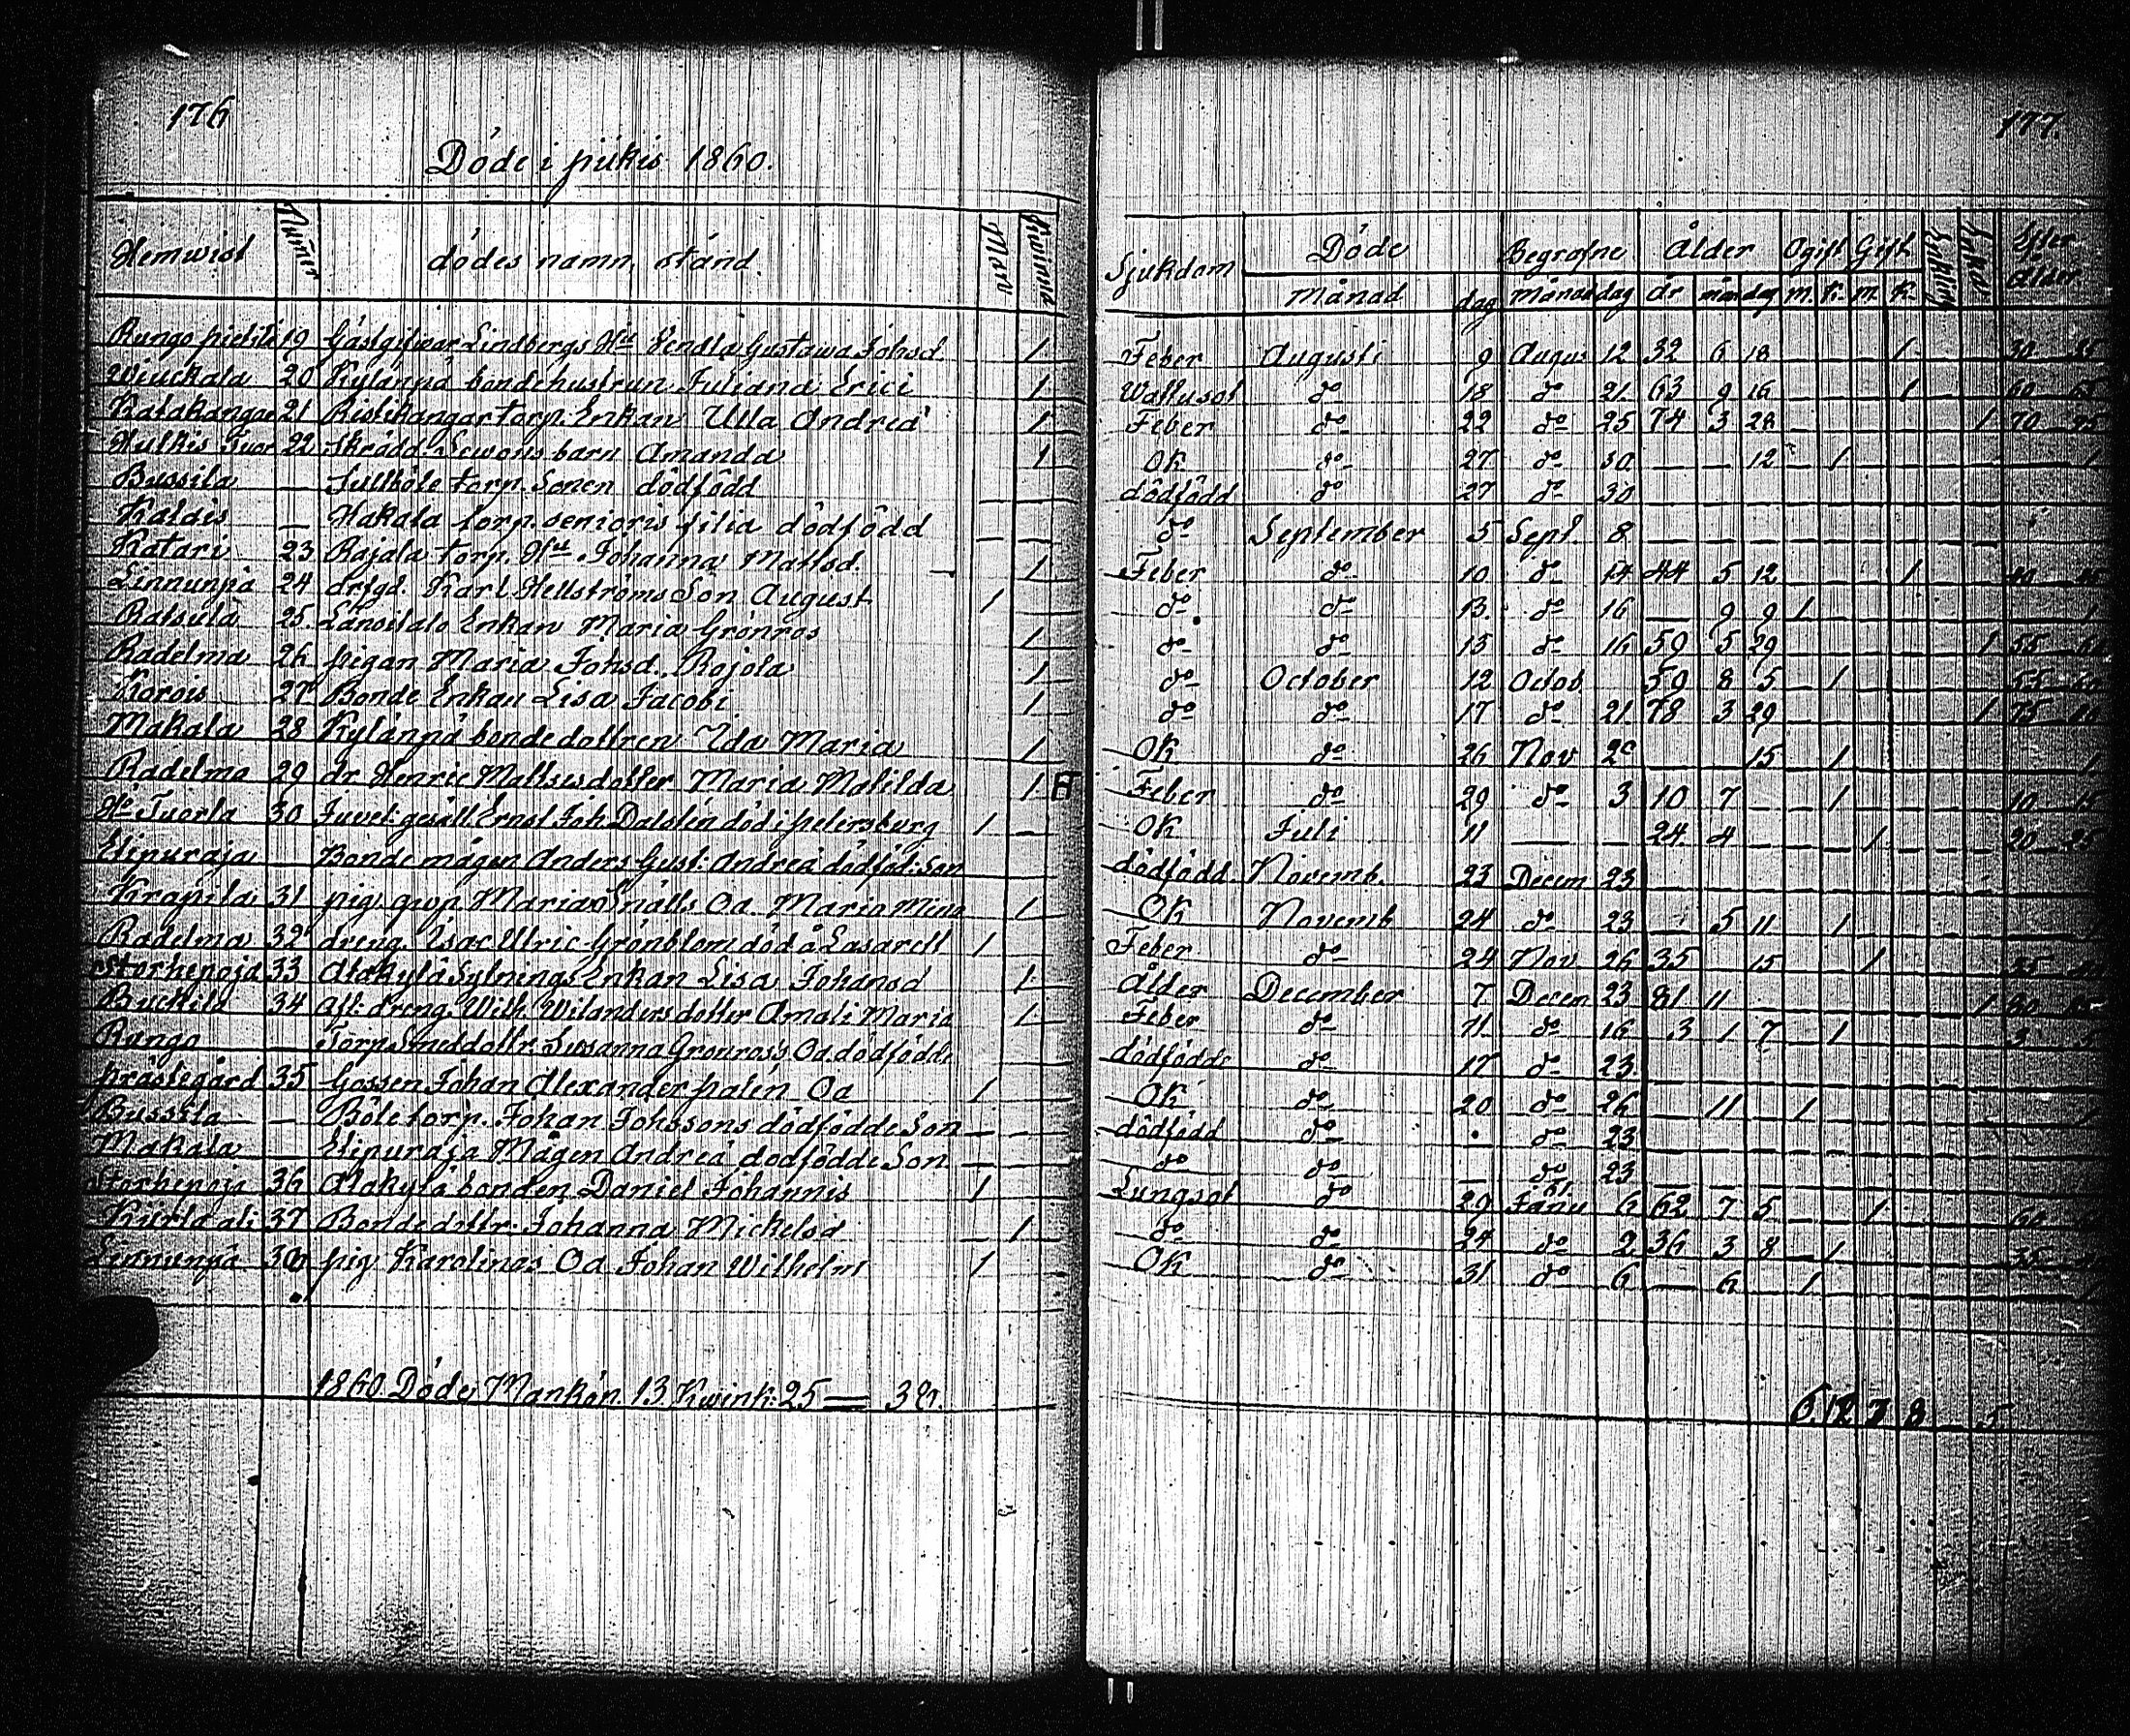 176
Döde i piikis 1860.
Hemwist Numer dödes namn, stånd. Man Kwinna
Rungo 19 Gästgifware Lindbergs Hst Vendla Gustawa Johsd. 1
Wiuckala 20 Kylänpä bondehustrun Juliana Erici 1
Katakangas 21 Ristikangar torp. Enkan Ulla Andreæ 1
Huttkis Tuor 22 Skrädd. barn Amanda 1
Bussila — torp. Sonen dödfödd — —
Kaldis — Hakala torp. senioris filia dödfödd — —
Katari 23 Rajala torp. Hst Johanna Mattsd. — 1
Linnunpä 24 Karl Hellströms Son August 1
25. Länsitalo Enkan Maria Grönros 1
Radelma 26 pigan Maria Johsd. Rojola 1
Korois 27 Bonde Enkan Lisa Jacobi 1
Makala 28 Kylänpä bondedottren Ida Maria 1
Radelma 29 dr. Henric Mattses dotter Maria Matilda 1
Ho Tuorla 30 Juvel: gesäll. Ernst Joh. Dalslén död i petersburg 1 —
Elinuraja Bonde mågen Anders Gust: Andreæ dödföd: Son
Krapila 31 pig. Marias Snälls Oä. Maria Mina 1
Radelma 32 dreng. Isac Ulric Grönblom död å Lasarett 1
Storhepoja 33 Alakylä Sytnings Enkan Lisa Johansd 1
Buckila 34 aft: dreng. Wilh. Wilanders dotter Amali Maria 1
Rungo — Torp. Smeddottr. Susanna Grönros's Oä. dödfödde
prästegård 35 Gossen Johan Alexander palén Oä 1
Bussila — Böle torp. Johan Johssons dödfödde Son — —
Makala — Elinuraja Mågen Andreæ dödfödde Son — —
Storhepoja 36 Alakylä bonden Daniel Johannis 1
Kiurla ali 37 Bondedottr: Johanna Mickelsd — 1
Linnunpä 38 pig Karolinas Oä Johan Wilhelm 1
1860 Döde Mankön. 13 Kwink: 25 = 38.
177.
Sjukdom Döde Begrafne Ålder Ogift Gift Enkling Enkor Efter Ålder.
månad dag månad dag år mån dag m. k. m. k.
Feber Augusti 9 Augus 12 32 6 18 — — — 1 30
Wattusot do 18 do 21 63 9 16 — — — 1 60 65
Feber do 22 do 25 74 3 28 1 70
OK do 27 do 30 — — 12 — 1 1
dödfödd do 27 do 30
do September 5 Sept. 8
Feber do 10 do 14 44 5 12 — — — 1 40
do do 13. do 16 — 9 9 1 1
do do 13 do 16 59 5 29 1 55 60
do October 12 Octob 59 8 5 — 1 55 60
do do 17 do 21 78 3 29 1 75
OK do 26 Nov 15 — 1 1
Feber do 29 do 3 10 7 — — 1 10 15
OK Juli 11 — — 24. 4 — — — 1 20 25
dödfödd. Novemb. 23 Decem 23
OK Novemb 24 do 23 — 5 11 — 1
Feber do 24 Nov 26 35 15 — — 1 35
Ålder December 7 Decem 23 81 11 1 80 85
Feber do 11. do 16 3 1 7 — 1 3 5
dödfödde do 17 do 23.
OK do 20 do 26 — 11 — 1 1
dödfödd do do 23
do do — do 23
Lungsot do 29 Janu 61. 6 62 7 5 — — 1 60
do do 24 do 2 36 3 8 — 1 35
OK do 31 do 6 — 6 — 1 1
5